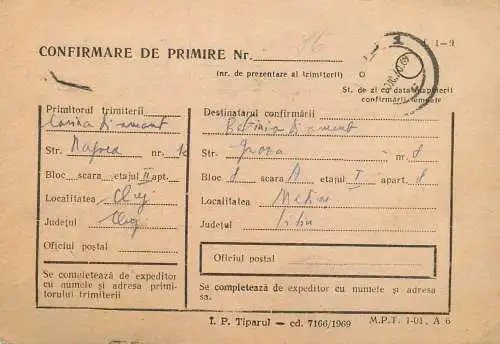 CONFIRMARE DE PRIMIRE Nr. 86
1-9
(nr. de prezentare al trimiterii)
St. de zi cu data
confirmării
Primitorul trimiterii
Str. nr.
Bloc scara etajul II apt.
Localitatea Cluj
Județul Cluj
Oficiul poștal
Se completează de expeditor
cu numele și adresa primi-
torului trimiterii
Destinatarul confirmării
Diamant
Str. nr. 8
Bloc 8 scara A etajul I apart. 8
Localitatea Mediaș
Județul Sibiu
Oficiul poștal
Se completează de expeditor cu numele și adresa
sa.
I. P. Tiparul — cd. 7166/1969 M.P.T. 1-01. A 6